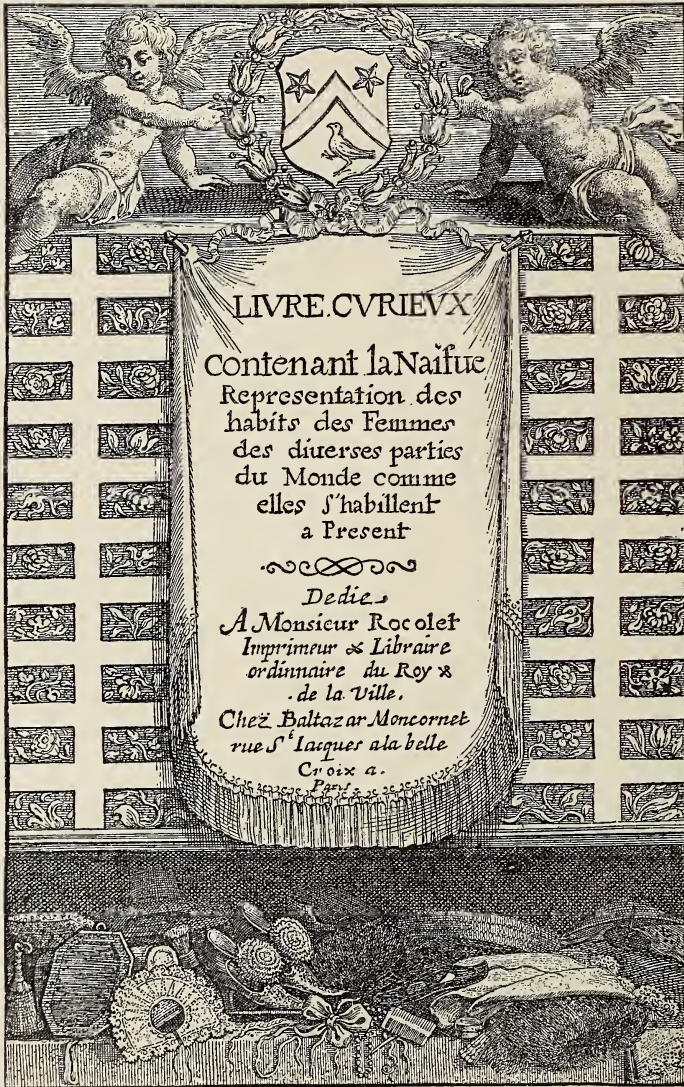 LIVRE.CVRIEVX
Contenant la Naïfue
Representation des
habits des Femmes
des diuerses parties
du Monde comme
elles s'habillent
a Present
Dedie
A Monsieur Rocolet
Imprimeur & Libraire
ordinnaire du Roy &
de la Ville.
Chez Baltazar Moncornet
rue St Iacques a la belle
Croix a.
Paris.